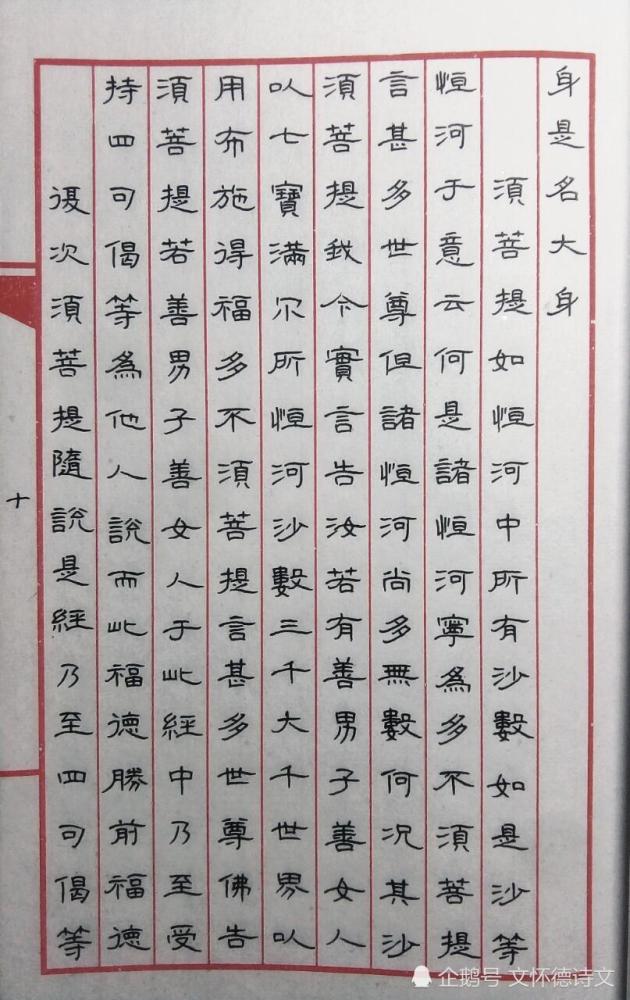 身是名大身
須菩提如恒河中所有沙數如是沙等
恒河于意云何是諸恒河寧為多不須菩提
言甚多世尊但諸恒河尚多無數何況其沙
須菩提我今實言告汝若有善男子善女人
以七寶滿尔所恒河沙數三千大千世界以
用布施得福多不須菩提言甚多世尊佛告
須菩提若善男子善女人于此經中乃至受
持四句偈等為他人說而此福德勝前福德
復次須菩提隨說是經乃至四句偈等
十
企鹅号 文怀德诗文